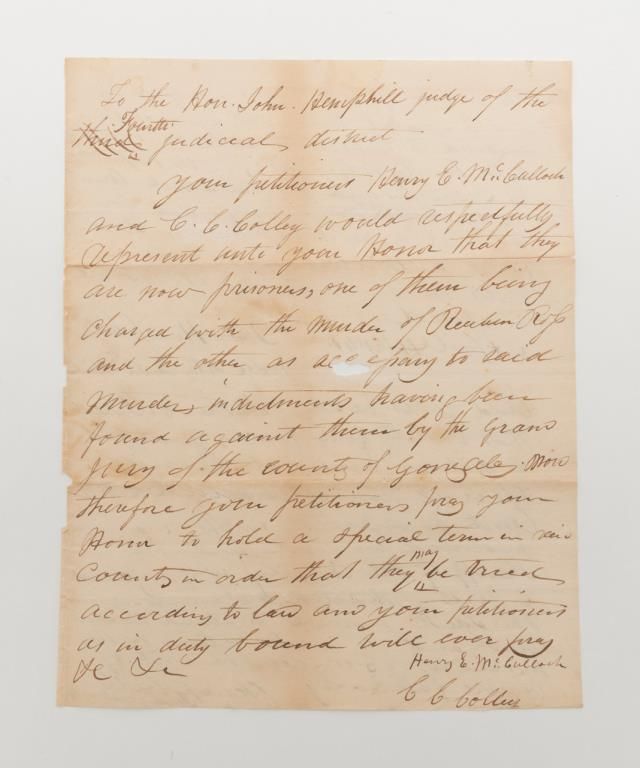 To the Hon. John. Hemphill judge of the
Fourth
third judicial district
your petitioners Henry E. McCulloch
and C. C. Colley would respectfully
represent unto your Honor that they
are now prisoners, one of them being
charged with the murder of Reuben Ross
and the other as accessary to said
murder, indictments having been
found against them by the Grand
jury of the county of Gonzales. Now
therefore your petitioners pray your
Honor to hold a special term in said
County in order that they may be tried
according to law and your petitioners
as in duty bound will ever pray
&c &c
Henry E. McCulloch
C C Colley